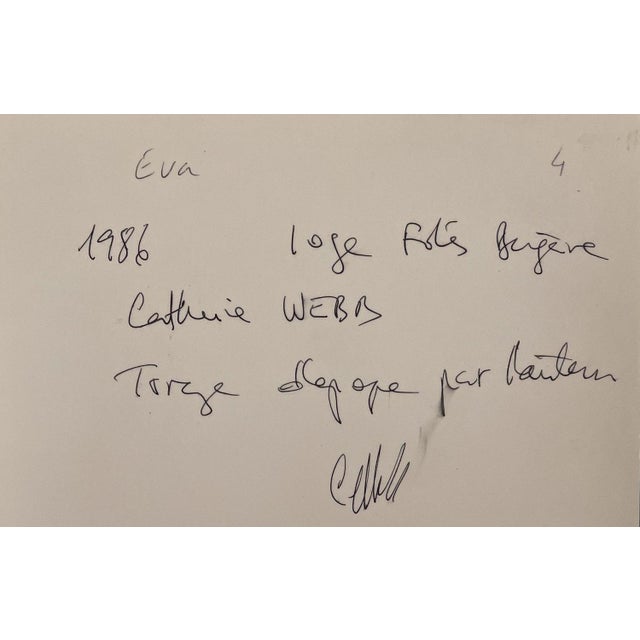 Eva 4
1986 loge Folies Bergère
Catherine WEBB
Tirage d'époque par l'auteur